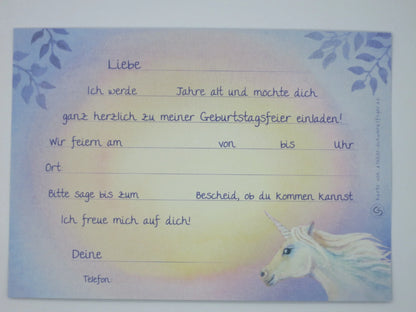 Liebe
Ich werde Jahre alt und möchte dich
ganz herzlich zu meiner Geburtstagsfeier einladen!
Wir feiern am von bis Uhr
Ort
Bitte sage bis zum Bescheid, ob du kommen kannst
Ich freue mich auf dich!
Deine
Telefon: